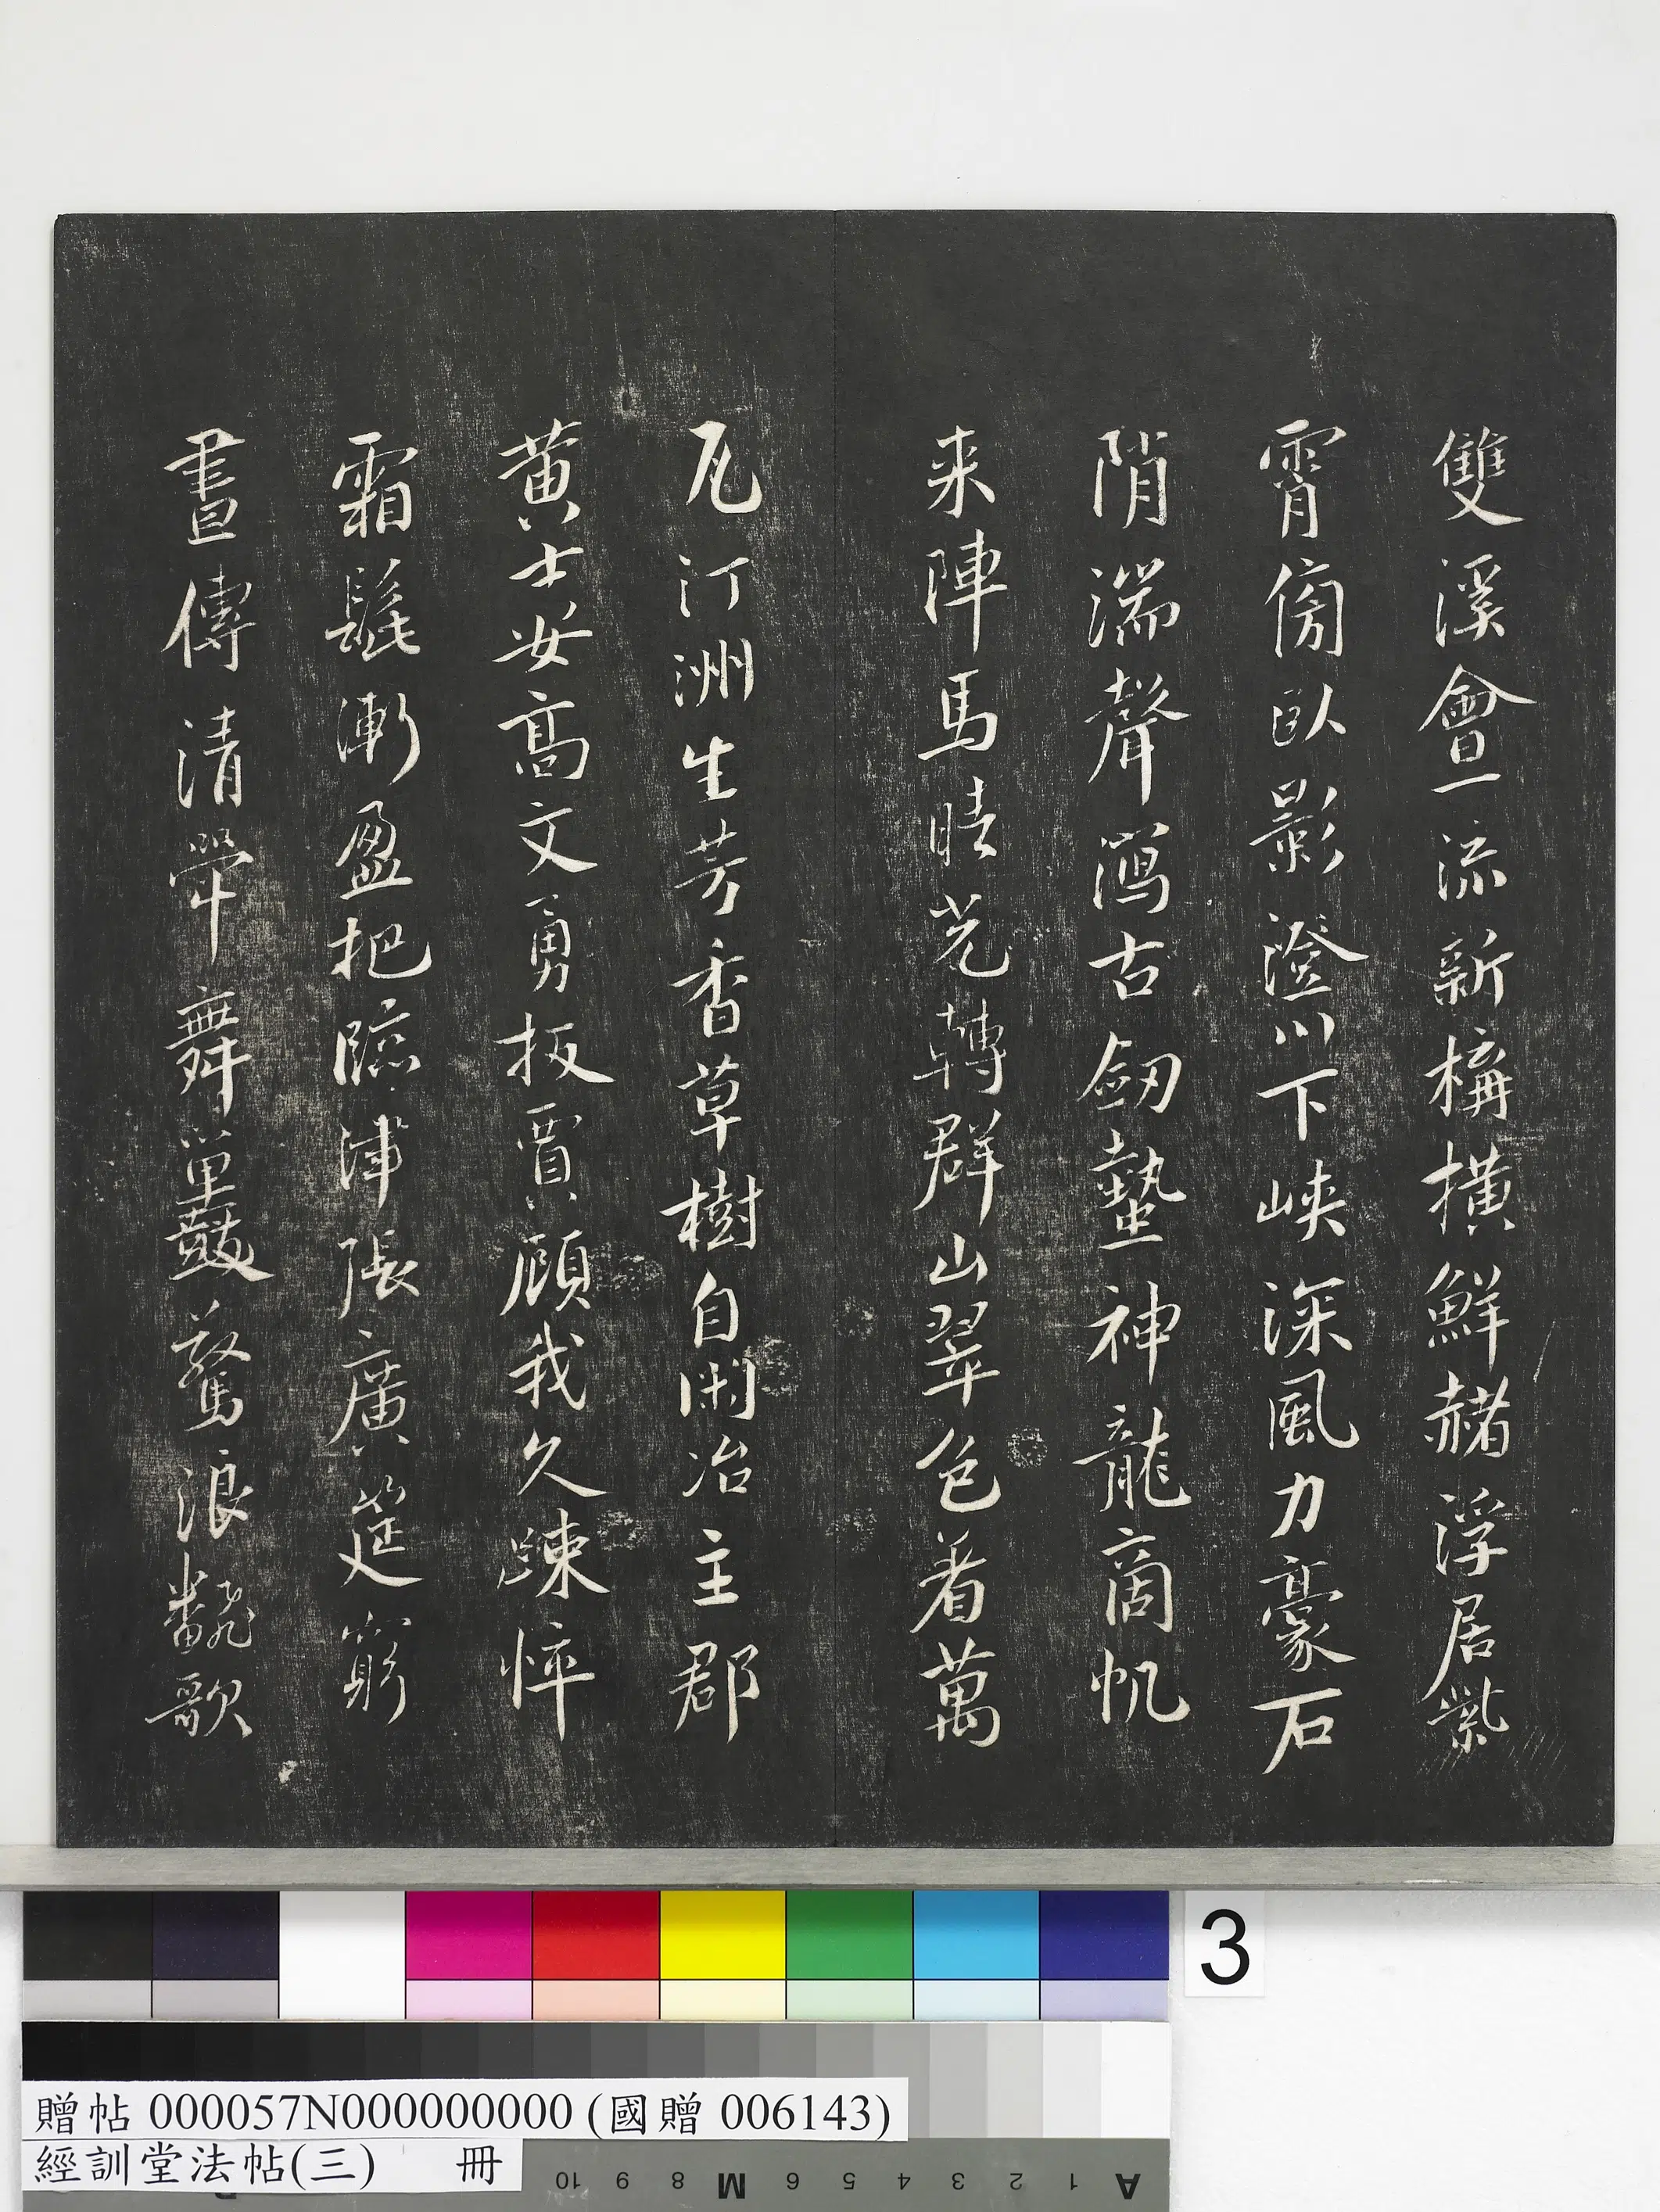 雙溪會一流新構橫鮮赭浮居紫
霄傍臥影澄川下峽深風力豪石
陗湍聲瀉古劒蟄神龍商帆
来陣馬晴光轉群山翠色着萬
瓦汀洲生芳香草樹自閑冶主郡
黃士安高文勇扳賈顧我久踈悴
霜髭漸盈把臨津張廣筵窮
晝傳清斝舞罣鼓驚浪翻歌
3
贈帖 000057N000000000 (國贈 006143)
經訓堂法帖(三) 冊
A 1 2 3 4 5 6 M 8 9 10